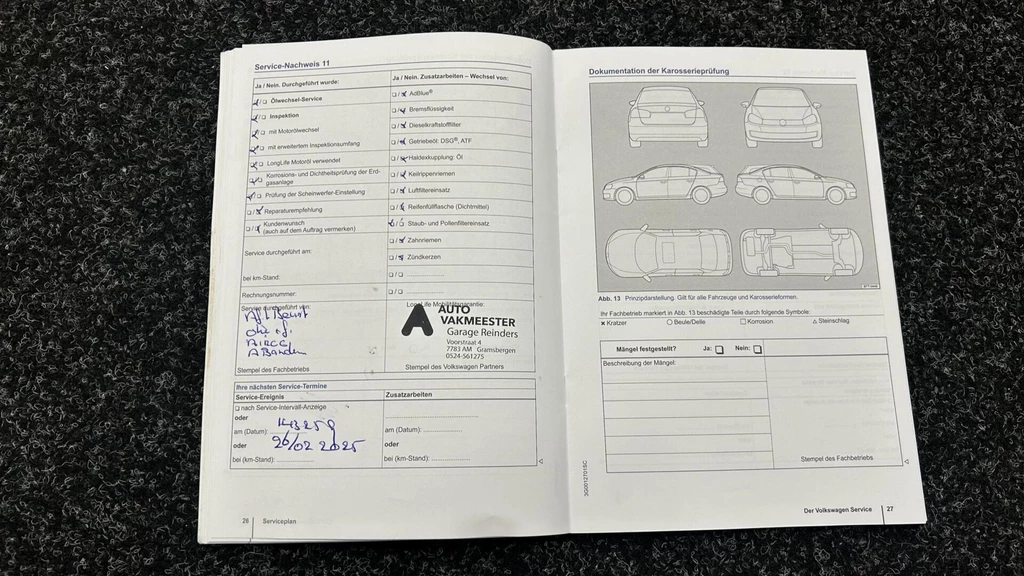 Service-Nachweis 11
Ja / Nein. Durchgeführt wurde:
Ölwechsel-Service
Inspektion
mit Motorölwechsel
mit erweitertem Inspektionsumfang
LongLife Motoröl verwendet
Korrosions- und Dichtheitsprüfung der Erd-
gasanlage
Prüfung der Scheinwerfer-Einstellung
Reparaturempfehlung
Kundenwunsch
(auch auf dem Auftrag vermerken)
Service durchgeführt am:
bei km-Stand:
Rechnungsnummer:
Service durchgeführt von:
olie
AIRCO
Stempel des Fachbetriebs
Ja / Nein. Zusatzarbeiten – Wechsel von:
AdBlue®
Bremsflüssigkeit
Dieselkraftstofffilter
Getriebeöl: DSG®, ATF
Haldexkupplung: Öl
Keilrippenriemen
Luftfiltereinsatz
Reifenfüllflasche (Dichtmittel)
Staub- und Pollenfiltereinsatz
Zahnriemen
Zündkerzen
LongLife Mobilitätsgarantie:
AUTO
VAKMEESTER
Garage Reinders
Voorstraat 4
7783 AM Gramsbergen
0524-561275
Stempel des Volkswagen Partners
Ihre nächsten Service-Termine
Service-Ereignis
nach Service-Intervall-Anzeige
oder
am (Datum): 143259
oder 26/02 2025
bei (km-Stand):
Zusatzarbeiten
am (Datum):
oder
bei (km-Stand):
26 Serviceplan
Dokumentation der Karosserieprüfung
Abb. 13 Prinzipdarstellung. Gilt für alle Fahrzeuge und Karosserieformen.
Ihr Fachbetrieb markiert in Abb. 13 beschädigte Teile durch folgende Symbole:
x Kratzer O Beule/Delle □ Korrosion △ Steinschlag
Mängel festgestellt? Ja: Nein:
Beschreibung der Mängel:
Stempel des Fachbetriebs
3G0012701SC
Der Volkswagen Service 27